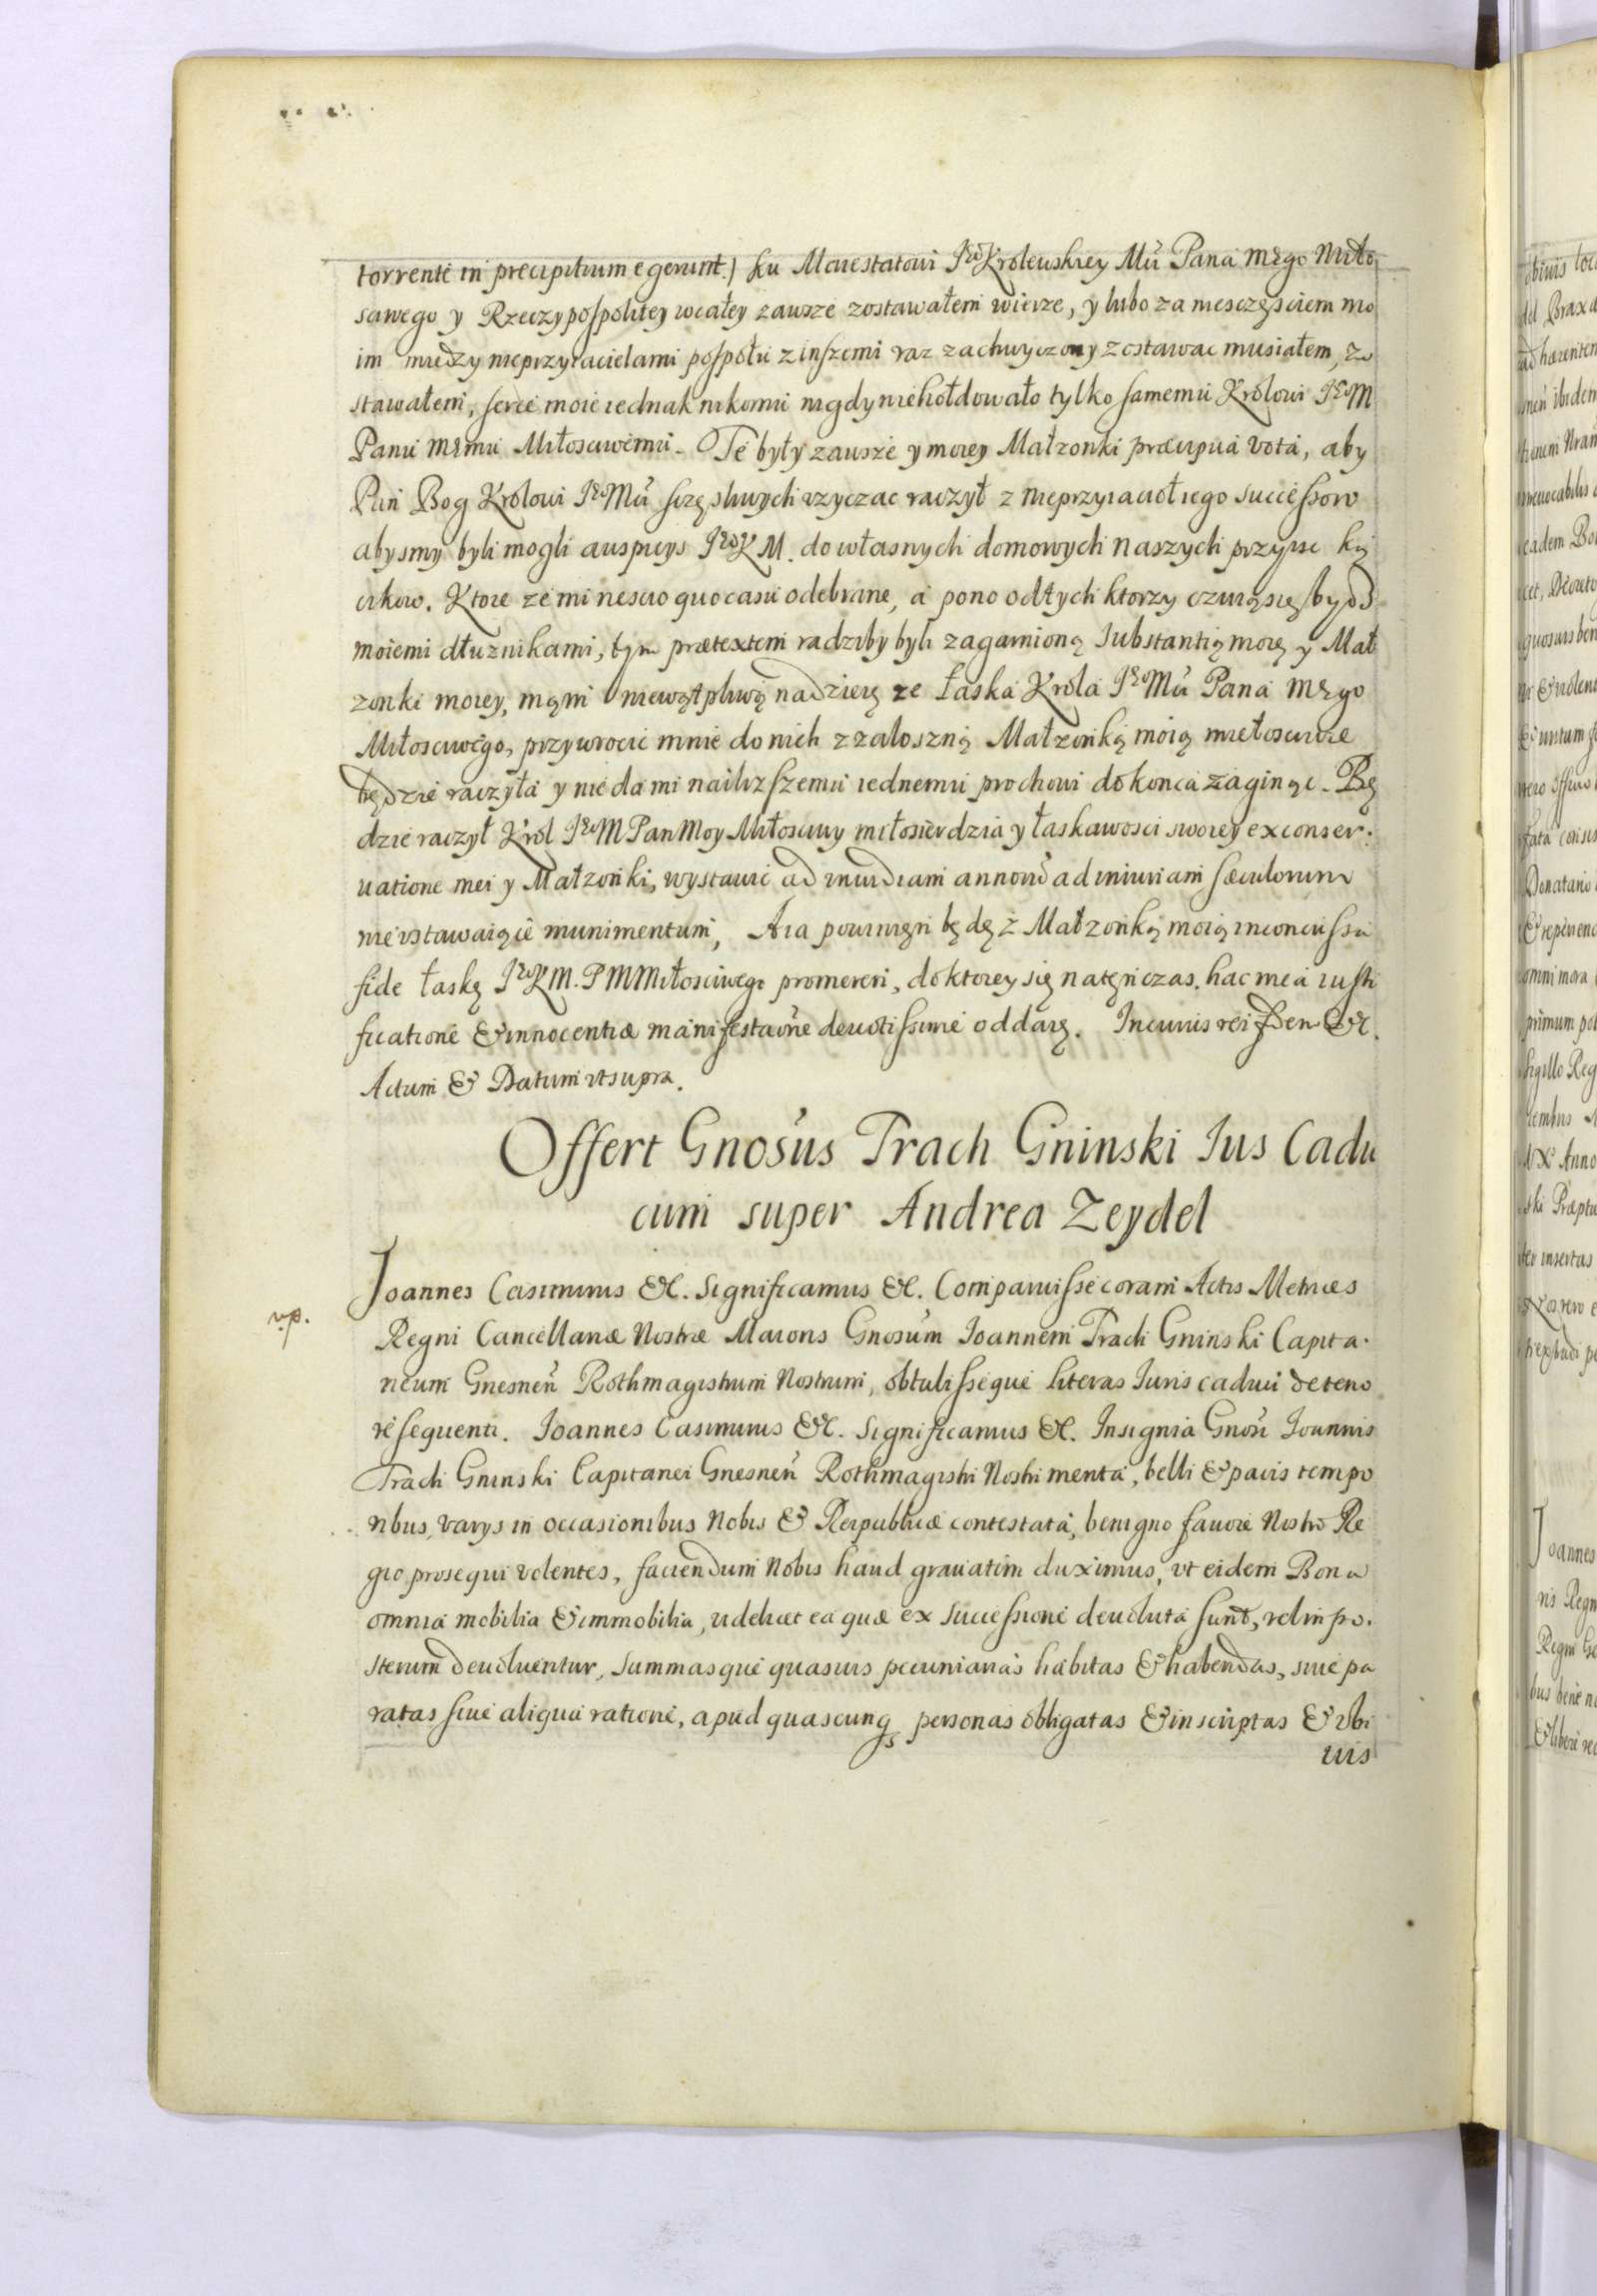 torrente in precipitium egerunt.) ku Maiestatowi Je⁰ Krolewskiey Mći Pana mego Miło
sciwego y Rzeczypospolitey wcałey zawsze zostawałem wierze, y lubo za niesczęściem mo
im między nieprzyiacielami pospołu z inszemi raz zachwyczony zostawac musiałem, zo
stawałem, serce moie iednak nikomu nigdy niehołdowało tylko samemu Krolowi Je⁰ M
Panu memu Miłosciwemu. Te były zawsze y moiey Małzonki præcipua vota, aby
Pan Bog Krolowi Je⁰ Mći szczęsliwych uzyczac raczył z nieprzyiacioł iego successow
abysmy byli mogli auspicys Je⁰ K M. do własnych domowych naszych przyisc ką
cikow. Ktore ze mi nescio quo casu odebrane, a pono od tych ktorzy czuią się bydź
moiemi dłuznikami, tym prætextem radziby byli zagarnioną substantią moię y Mał
zonki moiey, mam niewątpliwą nadzieię ze Łaska Krola Je⁰ Mći Pana mego
Miłosciwego, przywrocic mnie do nich z załoszną Małzonką moią miełosciwie
będzie raczyła y nie da mi nailizszemu iednemu prochowi do konca zaginąc. Bę
dzie raczył Krol Je⁰ M Pan Moy Miłosciwy miłosierdzia y łaskawosci swoiey ex conser.
uatione mei y Małzonki, wystawic ad inuidiam annorū ad iniuriam sæculorum
nie ustawaiące munimentum, A ia powinięn będę z Małzonką moią inconcussa
fide łaskę Je⁰ K M. P M Miłosciwego promereri, do ktorey się natęnczas, hac mea iusti
ficatione & innocentiæ manifestaōne deuotissime oddaię. In cuius rei fidem &c.
Actum & Datum ut supra.
Offert Gnosus Trach Gninski Ius Cadu
cum super Andrea Zeydel
Joannes Casimirus &c. Significamus &c. Comparuisse coram Actis Metrices
Regni Cancellariæ Nostræ Maioris Gnosum Joannem Trach Gninski Capita.
neum Gnesneñ Rothmagistrum Nostrum, obtulisseque literas Iuris caduci de teno
re sequenti. Joannes Casimirus &c. Significamus &c. Insignia Gnosi Joannis
Trach Gninski Capitanei Gnesneñ Rothmagistri Nostri merita, belli & pacis tempo
ribus, varys in occasionibus Nobis & Reipublicæ contestata, benigno fauore Nostro Re
gio prosequi volentes, faciendum Nobis haud grauatim duximus, vt eidem Bona
omnia mobilia & immobilia, videlicet ea quæ ex successione deuoluta sunt, vel in po.
sterum deuoluentur, summasque quasuis pecuniarias habitas & habendas, siue pa
ratas siue aliqua ratione, apud quascunq; personas obligatas & inscriptas & vbi
uis